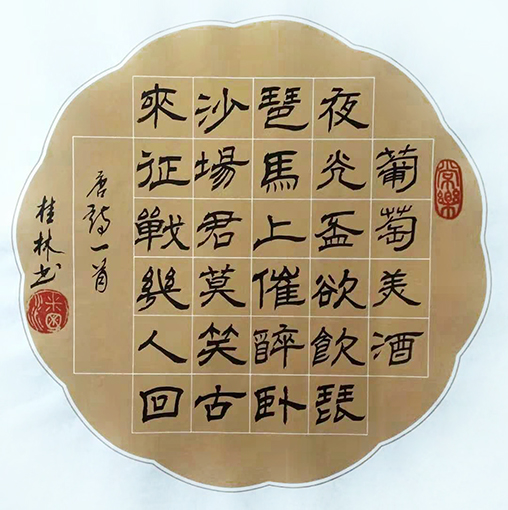 常樂
葡萄美酒
夜光盃欲飲琵
琶馬上催醉卧
沙場君莫笑古
來征戰幾人回
唐詩一首
桂林书